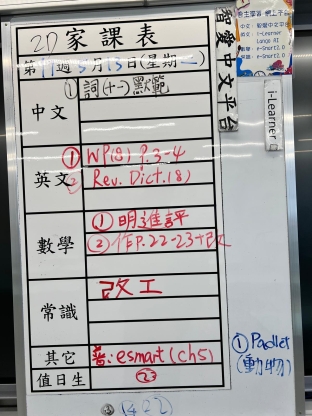 2D 家課表
月13日(星期一)
中文
① 詞(十一)默範
英文
① WP(8) P.3-4
② Rev. Dict.(8)
數學
① 明進評
② 作P.22-23+改
常識
改工
其它
普: esmart (ch5)
值日生
智愛中文平台
i-Learner
① Padlet
(動物)